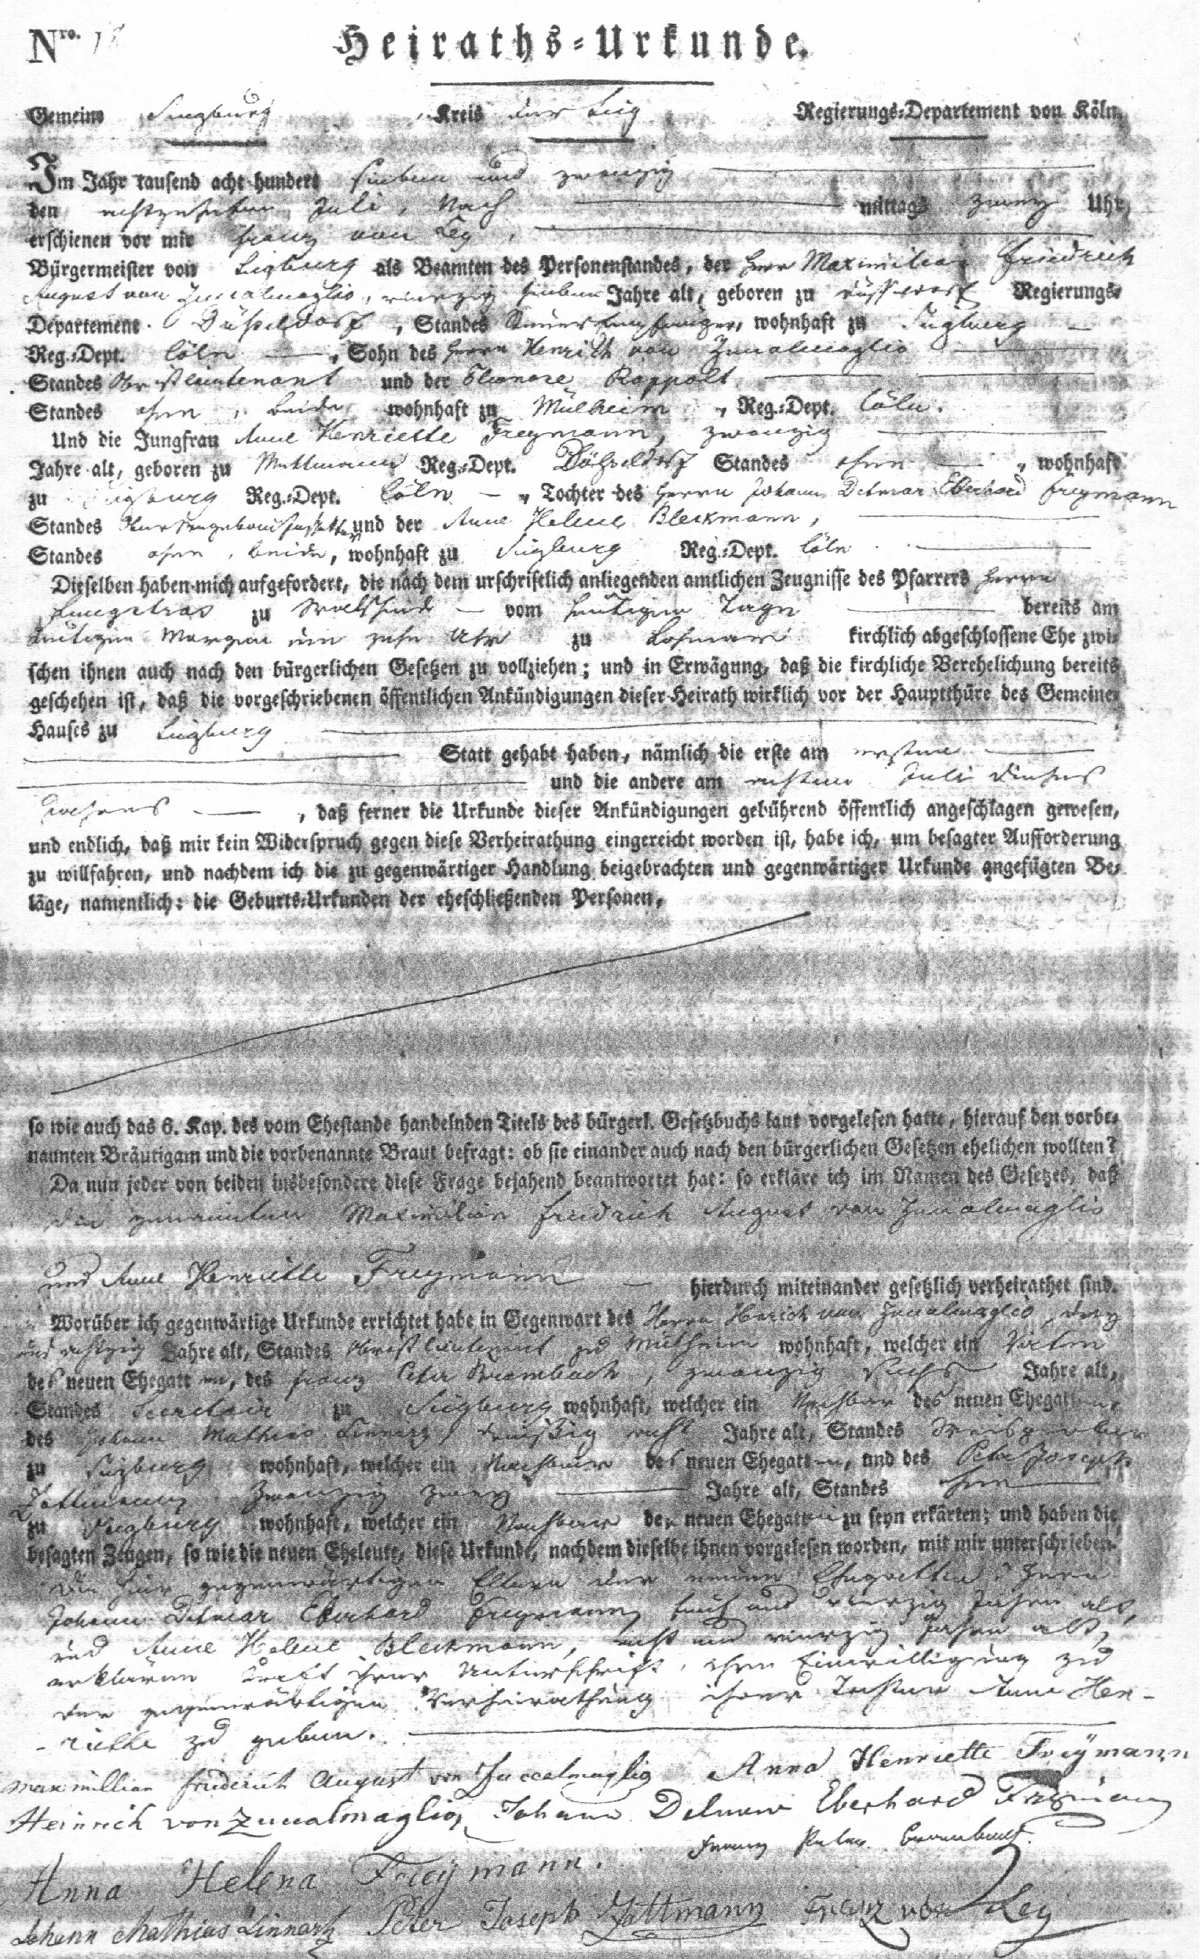 Nro. 18 Heiraths-Urkunde.
Gemeine Siegburg Kreis der Sieg Regierungs-Departement von Köln,
Im Jahr tausend acht hundert sieben und zwanzig
den achtzehnten Juli, Nach mittags zwey Uhr,
erschienen vor mir Franz von Ley,
Bürgermeister von Siegburg als Beamten des Personenstandes, der Herr Maximilian Friedrich
August von Zuccalmaglio, vierzig sieben Jahre alt, geboren zu Regierungs-
Departement Düßeldorf, Standes Steuer Empfänger, wohnhaft zu Siegburg
Reg.-Dept. Cöln, Sohn des Herrn Henrich von Zucalmaglio
Standes Obristlieutenant und der Eleonore Rappolt
Standes ohne, beide wohnhaft zu Mülheim, Reg.-Dept. Cöln.
Und die Jungfrau Anne Henriette Freymann, zwanzig
Jahre alt, geboren zu Mettmann Reg.-Dept. Düßeldorf Standes ohne, wohnhaft
zu Siegburg Reg.-Dept. Cöln, Tochter des Herrn Johann Detmar Eberhard Freymann
Standes und der Anne Helene Bleckmann,
Standes ohne, beide, wohnhaft zu Siegburg Reg.-Dept. Cöln
Dieselben haben mich aufgefordert, die nach dem urschriftlich anliegenden amtlichen Zeugnisse des Pfarrers Herrn
zu vom heutigen Tage bereits am
heutigen Morgen um zehn Uhr zu kirchlich abgeschlossene Ehe zwi-
schen ihnen auch nach den bürgerlichen Gesetzen zu vollziehen; und in Erwägung, daß die kirchliche Verehelichung bereits
geschehen ist, daß die vorgeschriebenen öffentlichen Ankündigungen dieser Heirath wirklich vor der Hauptthüre des Gemeine-
Hauses zu Siegburg
Statt gehabt haben, nämlich die erste am ersten
und die andere am achten Juli dieses
Jahres, daß ferner die Urkunde dieser Ankündigungen gebührend öffentlich angeschlagen gewesen,
und endlich, daß mir kein Widerspruch gegen diese Verheirathung eingereicht worden ist, habe ich, um besagter Aufforderung
zu willfahren, und nachdem ich die zu gegenwärtiger Handlung beigebrachten und gegenwärtiger Urkunde angefügten Be-
läge, namentlich: die Geburts-Urkunden der eheschließenden Personen,
so wie auch das 6. Kap. des vom Ehestande handelnden Titels des bürgerl. Gesetzbuchs laut vorgelesen hatte, hierauf den vorbe-
nannten Bräutigam und die vorbenannte Braut befragt: ob sie einander auch nach den bürgerlichen Gesetzen ehelichen wollten?
Da nun jeder von beiden insbesondere diese Frage bejahend beantwortet hat: so erkläre ich im Namen des Gesetzes, daß
die genannten Maximilian Friedrich August von Zucalmaglio
und Anne Henriette Freymann hierdurch miteinander gesetzlich verheirathet sind.
Worüber ich gegenwärtige Urkunde errichtet habe in Gegenwart des Herrn Henrich von Zucalmaglio, drey
und achtzig Jahre alt, Standes Obristlieutenant zu Mülheim wohnhaft, welcher ein Vater
des neuen Ehegatten, des Franz Peter Brambach, zwanzig sechs Jahre alt,
Standes Secretair zu Siegburg wohnhaft, welcher ein Nachbar des neuen Ehegatten
des Johann Mathias Linnartz, dreißig acht Jahre alt, Standes Weisgerber
zu Siegburg wohnhaft, welcher ein Nachbar des neuen Ehegatten, und des Peter Joseph
zwanzig zwey Jahre alt, Standes ohne
zu Siegburg wohnhaft, welcher ein Nachbar der neuen Ehegatten zu seyn erkärten; und haben die
besagten Zeugen, so wie die neuen Eheleute, diese Urkunde, nachdem dieselbe ihnen vorgelesen worden, mit mir unterschrieben.
Die hier gegenwärtigen Eltern der neuen Ehegattin: Herr
Johann Detmar Eberhard Freymann, fünf und vierzig Jahre alt,
und Anne Helene Bleckmann, acht und vierzig Jahre alt,
erklären durch ihre Unterschrift, ihre Einwilligung zu
der gegenwärtigen Verheirathung ihrer Tochter Anne Hen-
riette zu geben.
Maximillian Friderich August von Zuccalmaglio Anna Henriette Freÿmann
Heinrich von Zucalmaglio, Johann Detmar Eberhard Freÿmann
Franz Peter Brambach.
Anna Helena Freÿmann.
Johann Mathias Linnartz Peter Joseph Franz von Ley